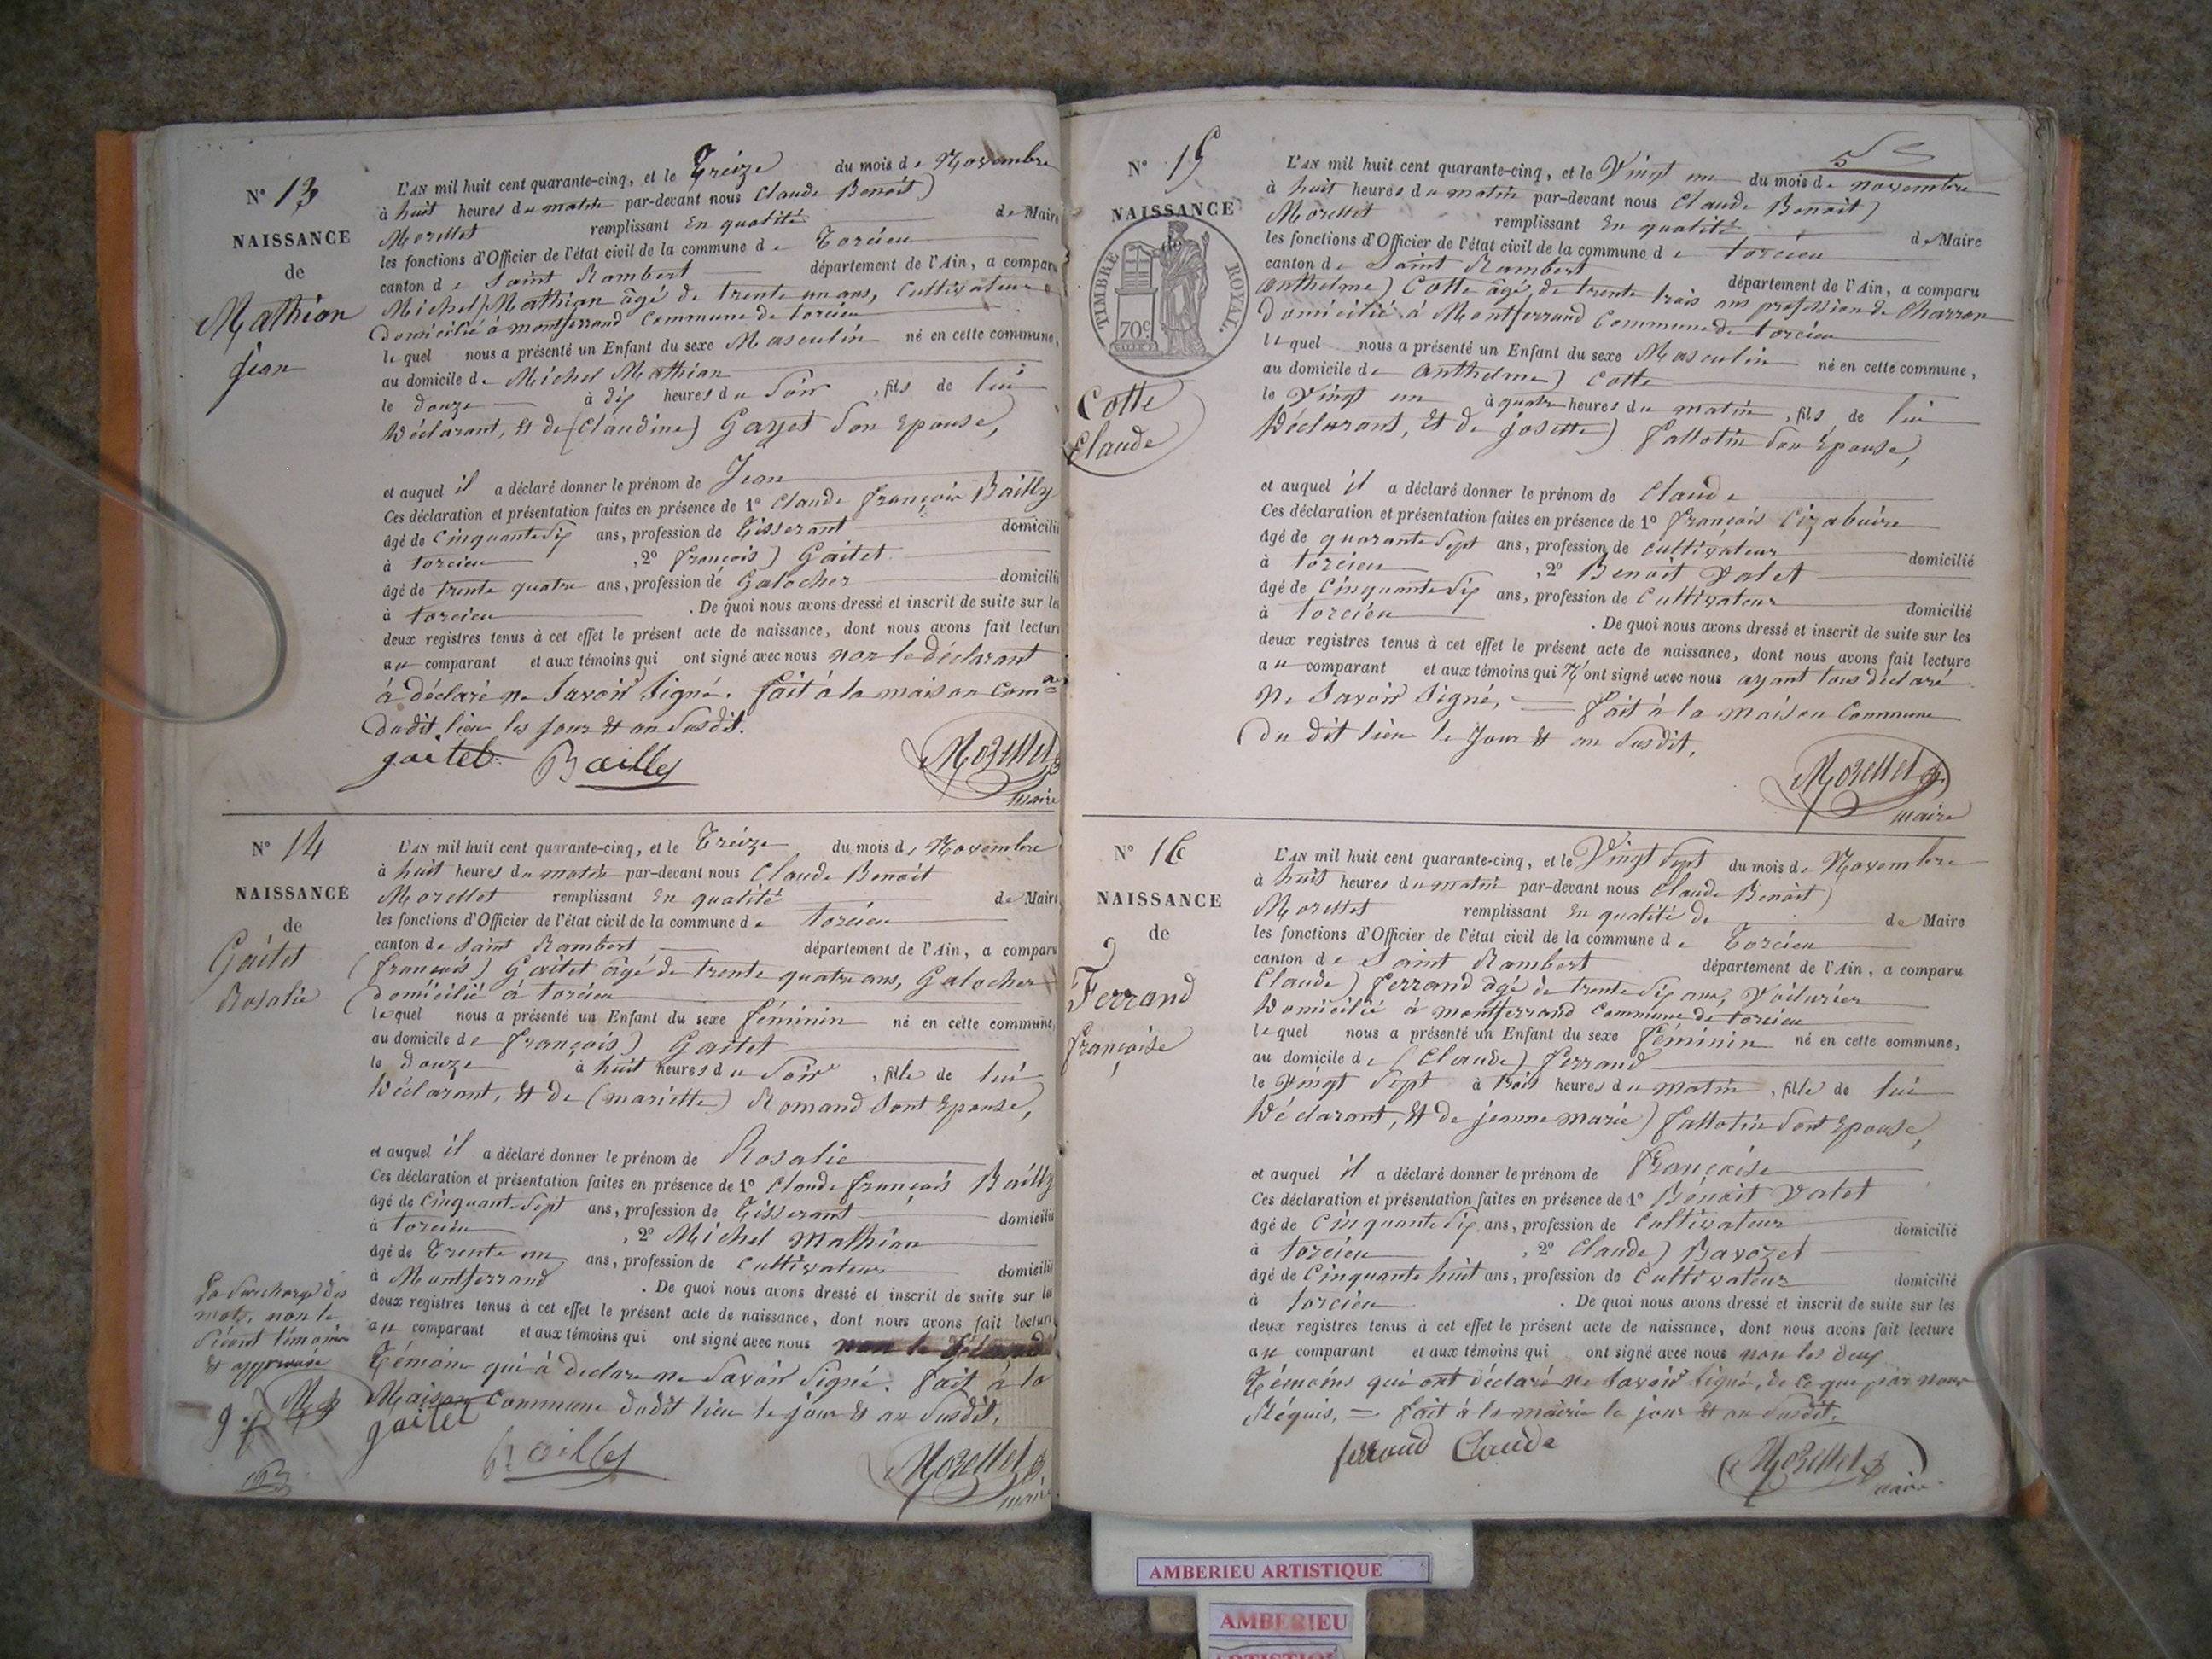 N° 13
NAISSANCE
de
Mathian
Jean
L'AN mil huit cent quarante-cinq, et le Treize du mois de Novembre
à huit heures du matin par-devant nous Claude Benoit)
Morellet remplissant En qualité de Maire
les fonctions d'Officier de l'état civil de la commune de Torcieu
canton de Saint Rambert département de l'Ain, a comparu
Michel) Mathian âgé de trente un ans, Cultivateur
Domicilié à montferrand Commune de torcieu
le quel nous a présenté un Enfant du sexe Masculin né en cette commune,
au domicile de Michel Mathian
le douze à dix heures du Soir, fils de lui
Déclarant, Et de (Claudine) Gayet Son Epouse,
et auquel il a déclaré donner le prénom de Jean
Ces déclaration et présentation faites en présence de 1° Claude françois Bailly
âgé de Cinquante Six ans, profession de Tisserant domicilié
à torcieu, 2° françois) Gaitet
âgé de trente quatre ans, profession de Galocher domicilié
à torcieu. De quoi nous avons dressé et inscrit de suite sur les
deux registres tenus à cet effet le présent acte de naissance, dont nous avons fait lecture
au comparant et aux témoins qui ont signé avec nous non le déclarant
à déclaré ne Savoir Signé. fait à la maison Com.ne
Dudit lieu les jour & an Susdit.
gaitet Bailly Morellet
maire
N° 14
NAISSANCE
de
Gaitet
Rosalie
L'AN mil huit cent quarante-cinq, et le Treize du mois de Novembre
à huit heures du matin par-devant nous Claude Benoit
Morellet remplissant En qualité de Maire
les fonctions d'Officier de l'état civil de la commune de torcieu
canton de Saint Rambert département de l'Ain, a comparu
(françois) Gaitet âgé de trente quatre ans, Galocher
Domicilié à torcieu
le quel nous a présenté un Enfant du sexe féminin né en cette commune,
au domicile de françois) Gaitet
le douze à huit heures du Soir, fille de lui
Déclarant, Et de (mariette) Romand Sont Epouse,
et auquel il a déclaré donner le prénom de Rosalie
Ces déclaration et présentation faites en présence de 1° Claude françois Bailly
âgé de Cinquante Sept ans, profession de Tisserant domicilié
à torcieu, 2° Michel Mathian
âgé de Trente un ans, profession de Cultivateur domicilié
à Montferrand. De quoi nous avons dressé et inscrit de suite sur les
deux registres tenus à cet effet le présent acte de naissance, dont nous avons fait lecture
au comparant et aux témoins qui ont signé avec nous non le
Témoin qui à declare ne Savoir Signé. fait à la
Maison Commune dudit lieu le jour & an Susdit.
La Surcharge des
mots, non le
témoin
Et approuvé
gaitet
Bailly
Morellet
maire
N° 15
NAISSANCE
de
TIMBRE ROYAL.
70c
Cotte
Claude
L'AN mil huit cent quarante-cinq, et le Vingt un du mois de novembre
à huit heures du matin par-devant nous Claude Benoit)
Morellet remplissant En qualité de Maire
les fonctions d'Officier de l'état civil de la commune de torcieu
canton de Saint Rambert département de l'Ain, a comparu
anthelme) Cotte âgé de trente trois ans profession de Charron
Domicilié à Montferrand Commune de torcieu
le quel nous a présenté un Enfant du sexe Masculin né en cette commune,
au domicile de anthelme) Cotte
le Vingt un à quatre heures du matin, fils de lui
Déclarant, Et de josette) fallotin Son Epouse,
et auquel il a déclaré donner le prénom de Claude
Ces déclaration et présentation faites en présence de 1° françois Cizabuire
âgé de quarante Sept ans, profession de Cultivateur domicilié
à torcieu, 2° Benoit Valet
âgé de Cinquante Six ans, profession de Cultivateur domicilié
à torcieu. De quoi nous avons dressé et inscrit de suite sur les
deux registres tenus à cet effet le présent acte de naissance, dont nous avons fait lecture
au comparant et aux témoins qui N'ont signé avec nous ayant tous déclaré
Ne Savoir Signé, = fait à la maison Commune
Du dit lieu le Jour & an Susdit,
Morellet
maire
N° 16
NAISSANCE
de
Ferrand
françoise
L'AN mil huit cent quarante-cinq, et le Vingt Sept du mois de Novembre
à huit heures du matin par-devant nous Claude Benoit)
Morellet remplissant En qualité de de Maire
les fonctions d'Officier de l'état civil de la commune de Torcieu
canton de Saint Rambert département de l'Ain, a comparu
Claude) ferrand âgé de trente Six ans, Voiturier
Domicilié à montferrand Commune de torcieu
le quel nous a présenté un Enfant du sexe féminin né en cette commune,
au domicile de (Claude) ferrand
le Vingt Sept à trois heures du matin, fille de lui
Déclarant, Et de jeanne marie) fallotin Sont Epouse,
et auquel il a déclaré donner le prénom de Françoise
Ces déclaration et présentation faites en présence de 1° Benoit Valet
âgé de Cinquante Six ans, profession de Cultivateur domicilié
à torcieu, 2° Claude) Bavozet
âgé de Cinquante huit ans, profession de Cultivateur domicilié
à torcieu. De quoi nous avons dressé et inscrit de suite sur les
deux registres tenus à cet effet le présent acte de naissance, dont nous avons fait lecture
au comparant et aux témoins qui ont signé avec nous non les deux
Témoins qui ont déclaré ne Savoir Signé, de ce que par nous
Réquis, = fait à la mairie le jour & an Susdit.
ferrand Claude
Morellet
maire
AMBERIEU ARTISTIQUE
AMBERIEU
ARTISTIQUE